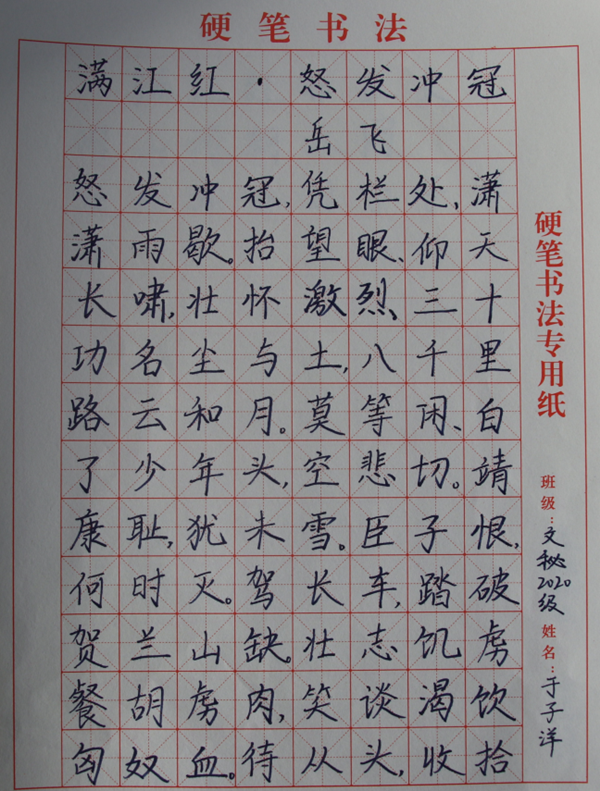 硬笔书法
满江红·怒发冲冠
岳飞
怒发冲冠,凭栏处、潇
潇雨歇。抬望眼、仰天
长啸,壮怀激烈、三十
功名尘与土,八千里
路云和月。莫等闲、白
了少年头,空悲切。靖
康耻,犹未雪。臣子恨,
何时灭。驾长车,踏破
贺兰山缺。壮志饥虏
餐胡虏肉,笑谈渴饮
匈奴血。待从头,收拾
硬笔书法专用纸
班级:文秘2020级
姓名:于子洋